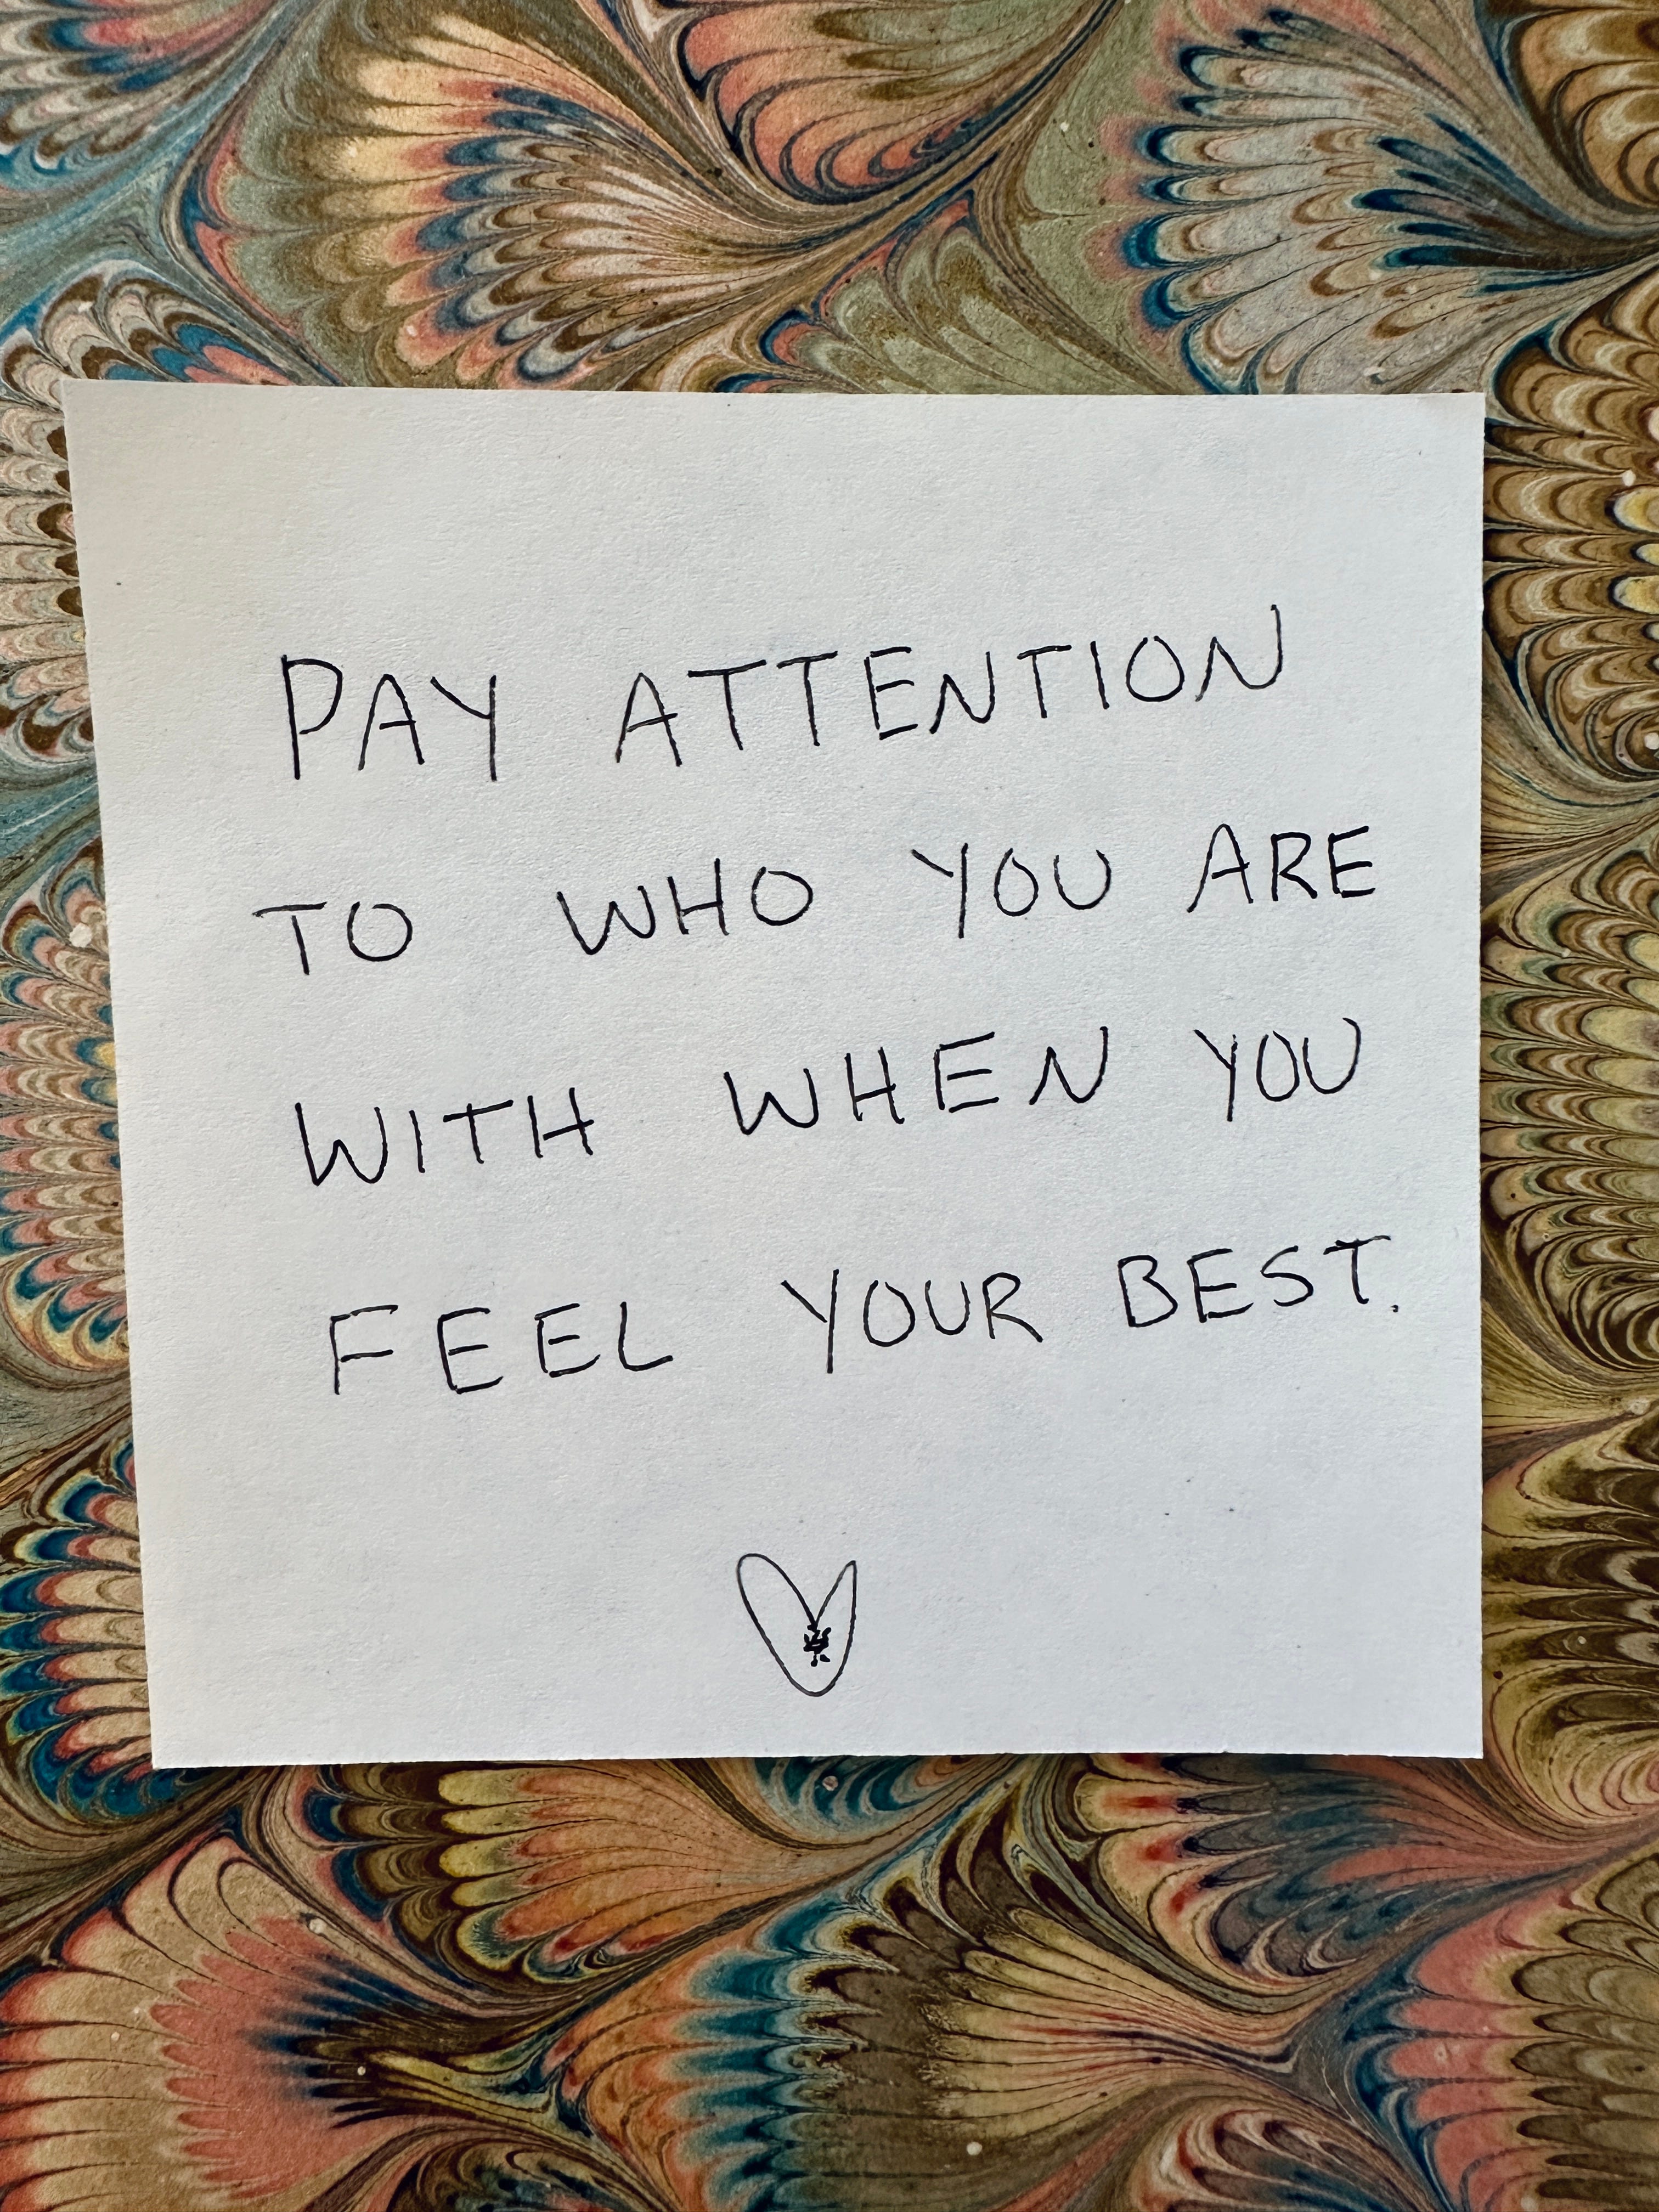 PAY ATTENTION
TO WHO YOU ARE
WITH WHEN YOU
FEEL YOUR BEST.